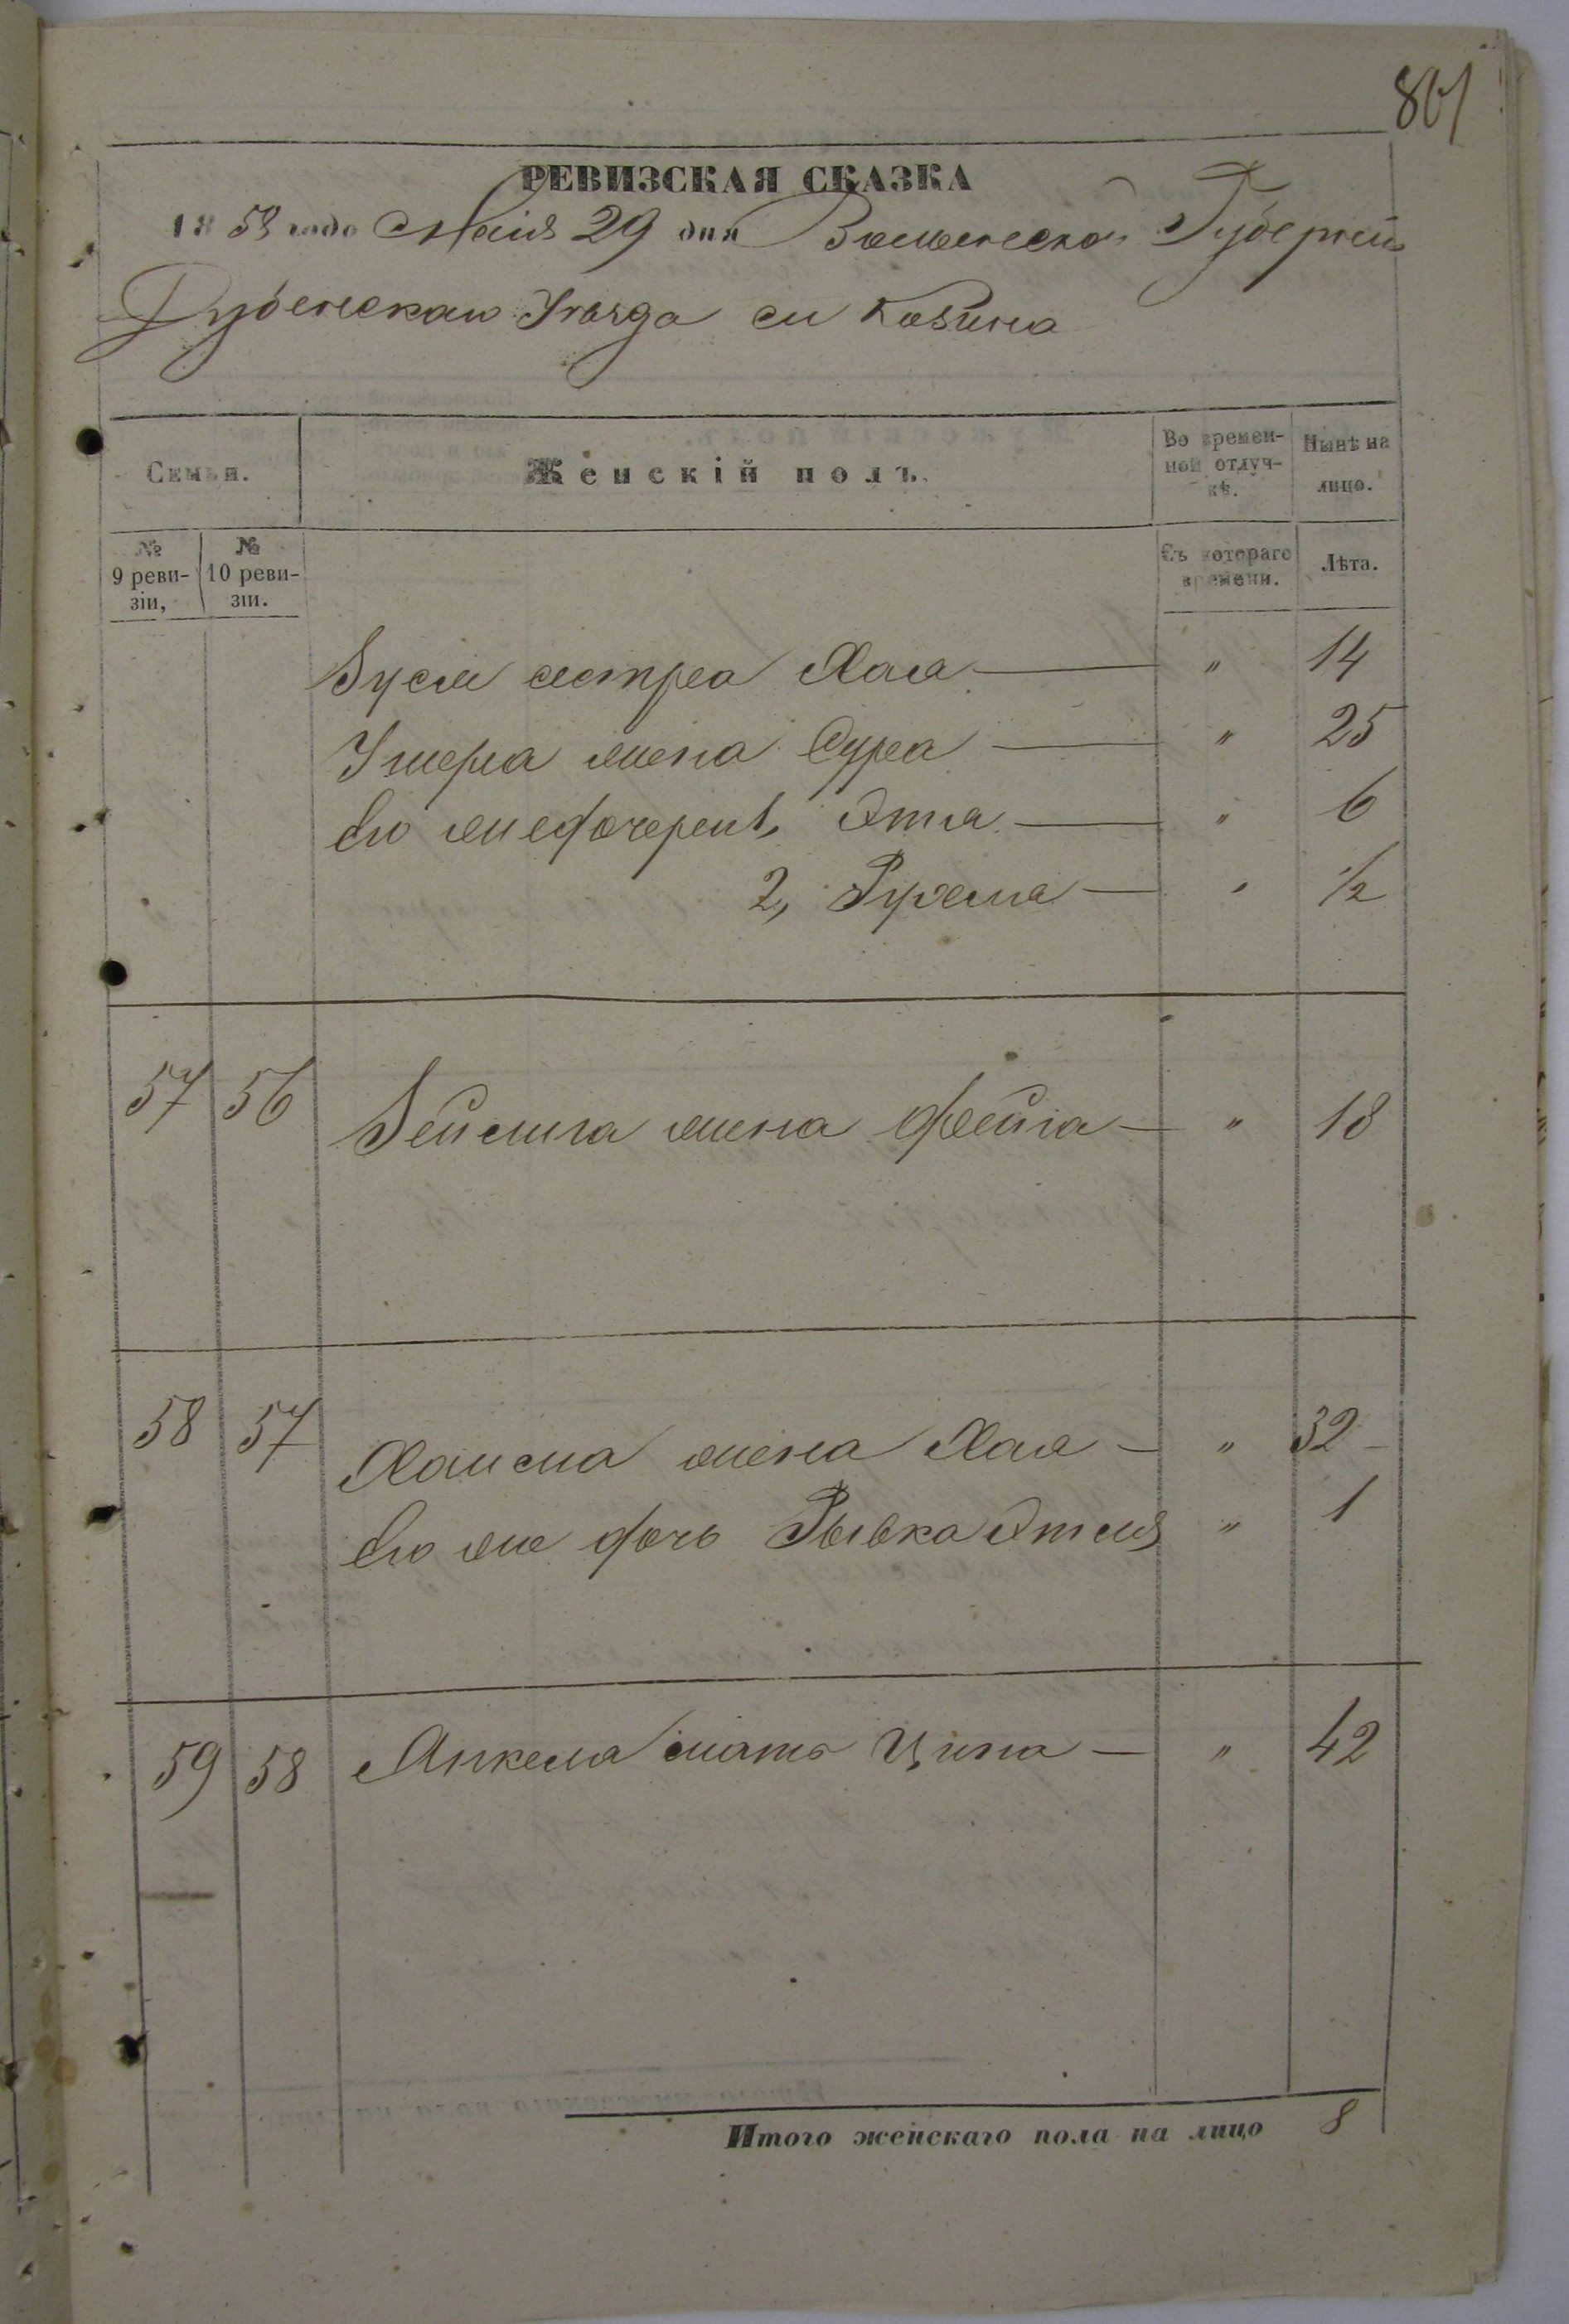 801
РЕВИЗСКАЯ СКАЗКА
1858 года Маія 29 дня Волынской Губерніи
Дубенскаго Уѣзда м Козина
Семьи.
Женскій полъ.
Во времен-
ной отлуч-
кѣ.
Нынѣ на
лицо.
№
9 реви-
зіи,
№
10 реви-
зіи.
Съ котораго
времени.
Лѣта.
Зуся сестра Хая — " 14
жена Сура — " 25
Его же дочери 1, Этя — " 6
2, Рухля — " 1/2
57 56 Зейлига жена Фейга — " 18
58 57 жена Хая — " 32
Его же дочь Рывка Этля " 1
59 58 Анкеля мать Ципа — " 42
Итого женскаго пола на лицо 8